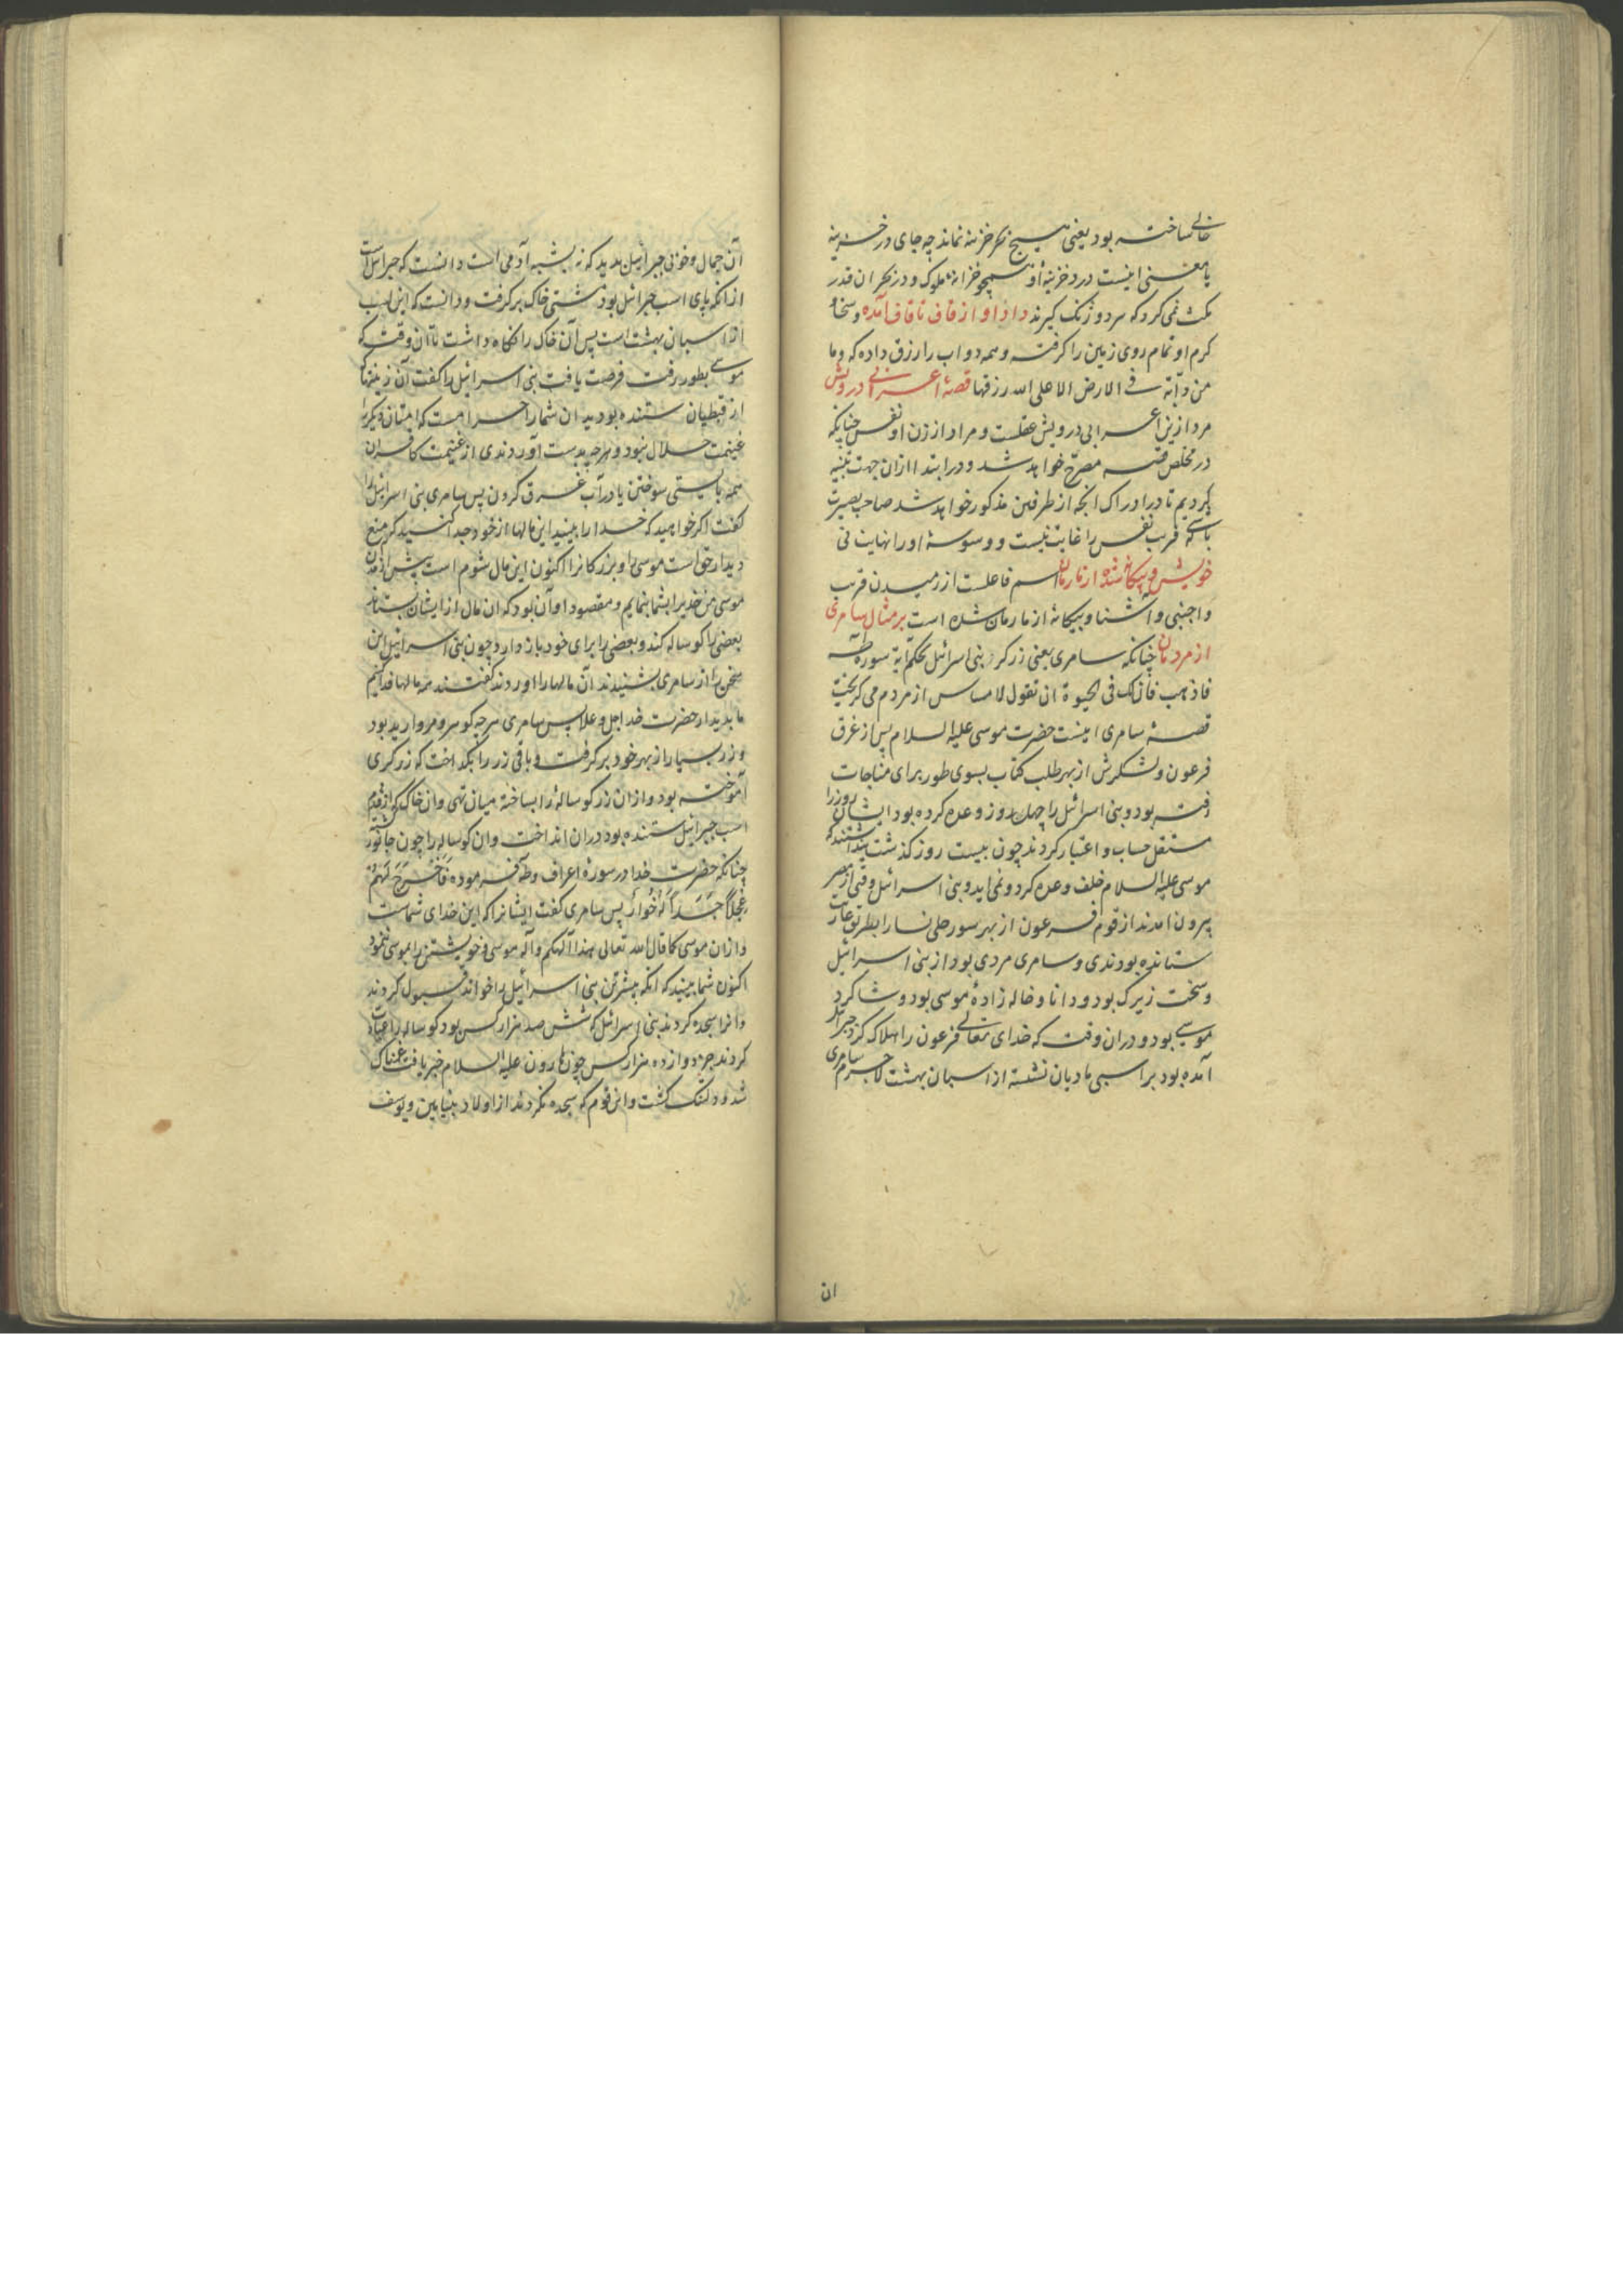 خالی ساخته بود یعنی هیچ بحر خزینه نماند چه جای در خزینه
یا معنی اینست در خزینهٔ او همچو خزانهٔ ملوک و در بحر ان قدر
مکث نمی کرد که سر دو زنک کیرند داد او از قاف تا قاف آمده و سخا و
کرم او تمام روی زمین را کرفته و همه دواب را رزق داده که وما
من دآبة فی الارض الا علی الله رزقها قصهٔ اعرابی درویش
مراد ازین اعرابی درویش عقلست و مراد از زن او نفس چنانکه
در مخلص قصه مصرح خواهد شد و در ابتدا ازان جهت تنبیه
کردیم تا در ادراک انچه از طرفین مذکور خواهد شد صاحب بصیرت
باشی که فریب نفس را غایت نیست و وسوسهٔ او را نهایت نی
خویش و بیکانه شده از ما رمان اسم فاعلست از رمیدن قریب
و اجنبی و اشنا و بیکانه از ما رمان شده است بر مثال سامری
از مردمان چنانکه سامری یعنی زرکر بنی اسرائیل بحکم آیهٔ سورهٔ طه
فاذهب فان لک فی الحیوة ان تقول لا مساس از مردم می کریخت
قصهٔ سامری اینست حضرت موسی علیه السلام پس از غرق
فرعون و لشکرش از بهر طلب کتاب بسوی طور برای مناجات
رفته بود و بنی اسرائیل را چهل روز وعده کرده بود ایشان روز را
مستقل حساب و اعتبار کردند چون بیست روز کذشت پنداشتند که
موسی علیه السلام خلف وعده کرد و نمی اید و بنی اسرائیل وقتی از مصر
بیرون امدند از قوم فرعون از بهر سور حلی نسا را بطریق عاریت
ستانده بودندی و سامری مردی بود از بنی اسرائیل
و سخت زیرک بود و دانا و خاله زادهٔ موسی بود و شاکرد
موسی بود و دران وقت که خدای تعالی فرعون را هلاک کرد جبرائیل
آمده بود بر اسبی مادیان نشسته از اسبان بهشت لاجرم سامری
ان
آن جمال و خوبی جبرائیل بدید که نه بشبه آدمی است دانست که جبرائیل است
ازانکه پای اسب جبرائیل بود مشتی خاک برکرفت و دانست که این اسب
از اسبان بهشت است پس آن خاک را نکاه داشت تا آن وقت که
موسی بطور رفت فرصت یافت بنی اسرائیل را کفت آن زینتها
از قبطیان ستنده بودید ان شما را حرامست که امتان دیکر را
غنیمت حلال نبود و هرچه بدست آوردندی از غنیمت کافران
همه بایستی سوختن یا در آب غرق کردن پس سامری بنی اسرائیل را
کفت اکر خواهید که خدا را ببینید این مالها از خود جدا کنید که منع
دیدار حق است موسی را و بزرکانرا اکنون این مال شوم است پیش از امدن
موسی من خدیرا بشما بنمایم و مقصود او آن بود که ان مال از ایشان بستاند
بعضی را کوساله کند و بعضی را برای خود باز دارد چون بنی اسرائیل این
سخن را از سامری بشنیدند آن مالها را اوردند کفتند مر مالها فدا کنیم
ما بدیدار حضرت خدا جل و علا پس سامری هرچه کوهر و مروارید بود
و زر بسیار از بهر خود برکرفت و باقی زر را بکداخت که زرکری
آموخته بود و ازان زر کوساله را بساخته میان تهی و ان خاک که از قدم
اسب جبرائیل ستنده بود دران انداخت و ان کوساله را چون جانور
چنانکه حضرت خدا در سورهٔ اعراف و طه فرموده فَاَخْرَجَ لَهُمْ
عِجْلاً جَسَداً لَهُ خُوَارٌ پس سامری کفت ایشانرا که این خدای شماست
و ازان موسی کما قال الله تعالی هذا آلهکم و آله موسی و خویشتن را بموسی نمود
اکنون شما ببینید که انکه بیشترین بنی اسرائیل را خواند قبول کردند
و انرا سجده کردند بنی اسرائیل که شش صد هزار کس بود کوساله را عبادت
کردند جز دوازده هزار کس چون هارون علیه السلام خبر یافت غمناک
شد و دلتنک کشت و این قوم که سجده نکردند از اولاد بنیامین و یوسف